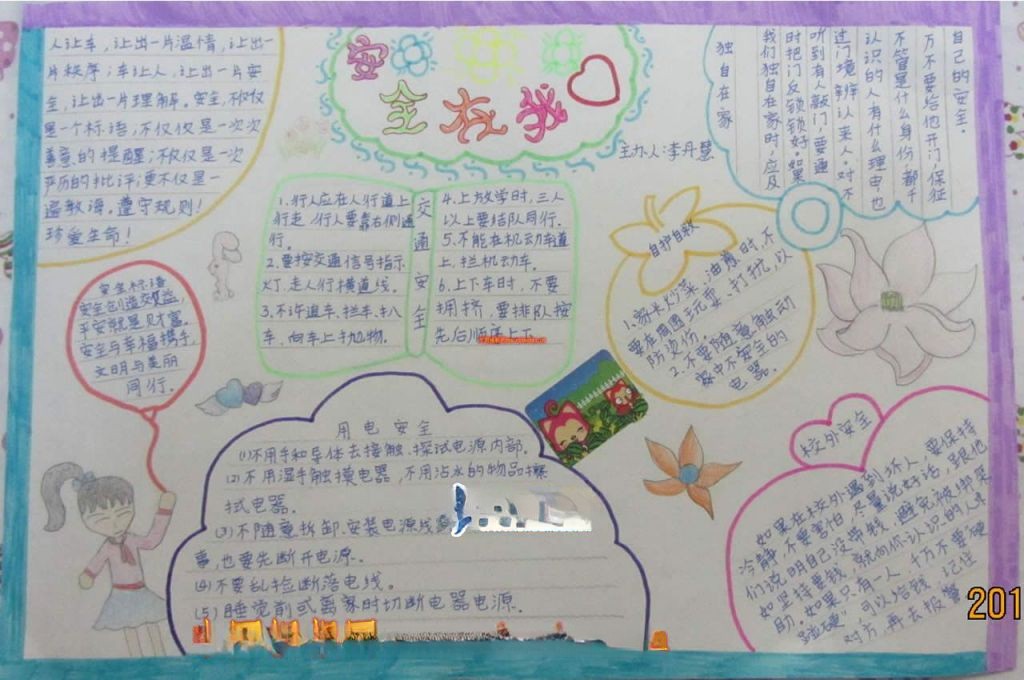 人让车，让出一片温情，让出一
片秩序；车让人，让出一片安
全，让出一片理解。安全，不仅仅
是一个标语；不仅仅是一次次
善意的提醒；不仅仅是一次
严厉的批评；更不仅是一
遍教诲。遵守规则！
珍爱生命！
安全在我
主办人：李丹慧
独自在家
我们独自在家时，应及
时把门反锁锁好。如果
听到有人敲门，要通
过门境辨认来人。对不
认识的人有什么理由也
不管是什么身份，都千
万不要给他开门，保证
自己的安全。
交通安全
1.行人应在人行道上
行走，行人要靠右侧通
行。
2.要按交通信号指示
灯，走人行横道线。
3.不许追车、拦车、扒
车、向车上扔物。
4.上放学时，三人
以上要结队同行。
5.不能在机动车道
上，拦机动车。
6.上下车时，不要
拥挤，要排队按
先后顺序上下
自护自救
1.家长炒菜、油膏时，不
要在周围玩耍、打扰，以
防烫伤。
2.不要随意触动
家中不安全的
电器。
安全标语
安全创造效益，
平安就是财富。
安全与幸福携手，
文明与美丽
同行。
用电安全
(1)不用手和导体去接触、探试电源内部。
(2)不用湿手触摸电器，不用沾水的物品擦
拭电器。
(3)不随意拆卸、安装电源线
事，也要先断开电源。
(4)不要乱捡断落电线。
(5)睡觉前或离家时切断电器电源。
校外安全
如果在校外遇到坏人，要保持
冷静，不要害怕，尽量说好话，跟他
们说明自己没带钱，避免被绑架
如坚持要钱，就向你认识的人求
助。如果只有一人，千万不要硬
碰硬，可以给钱，记住
对方，再去报警
201